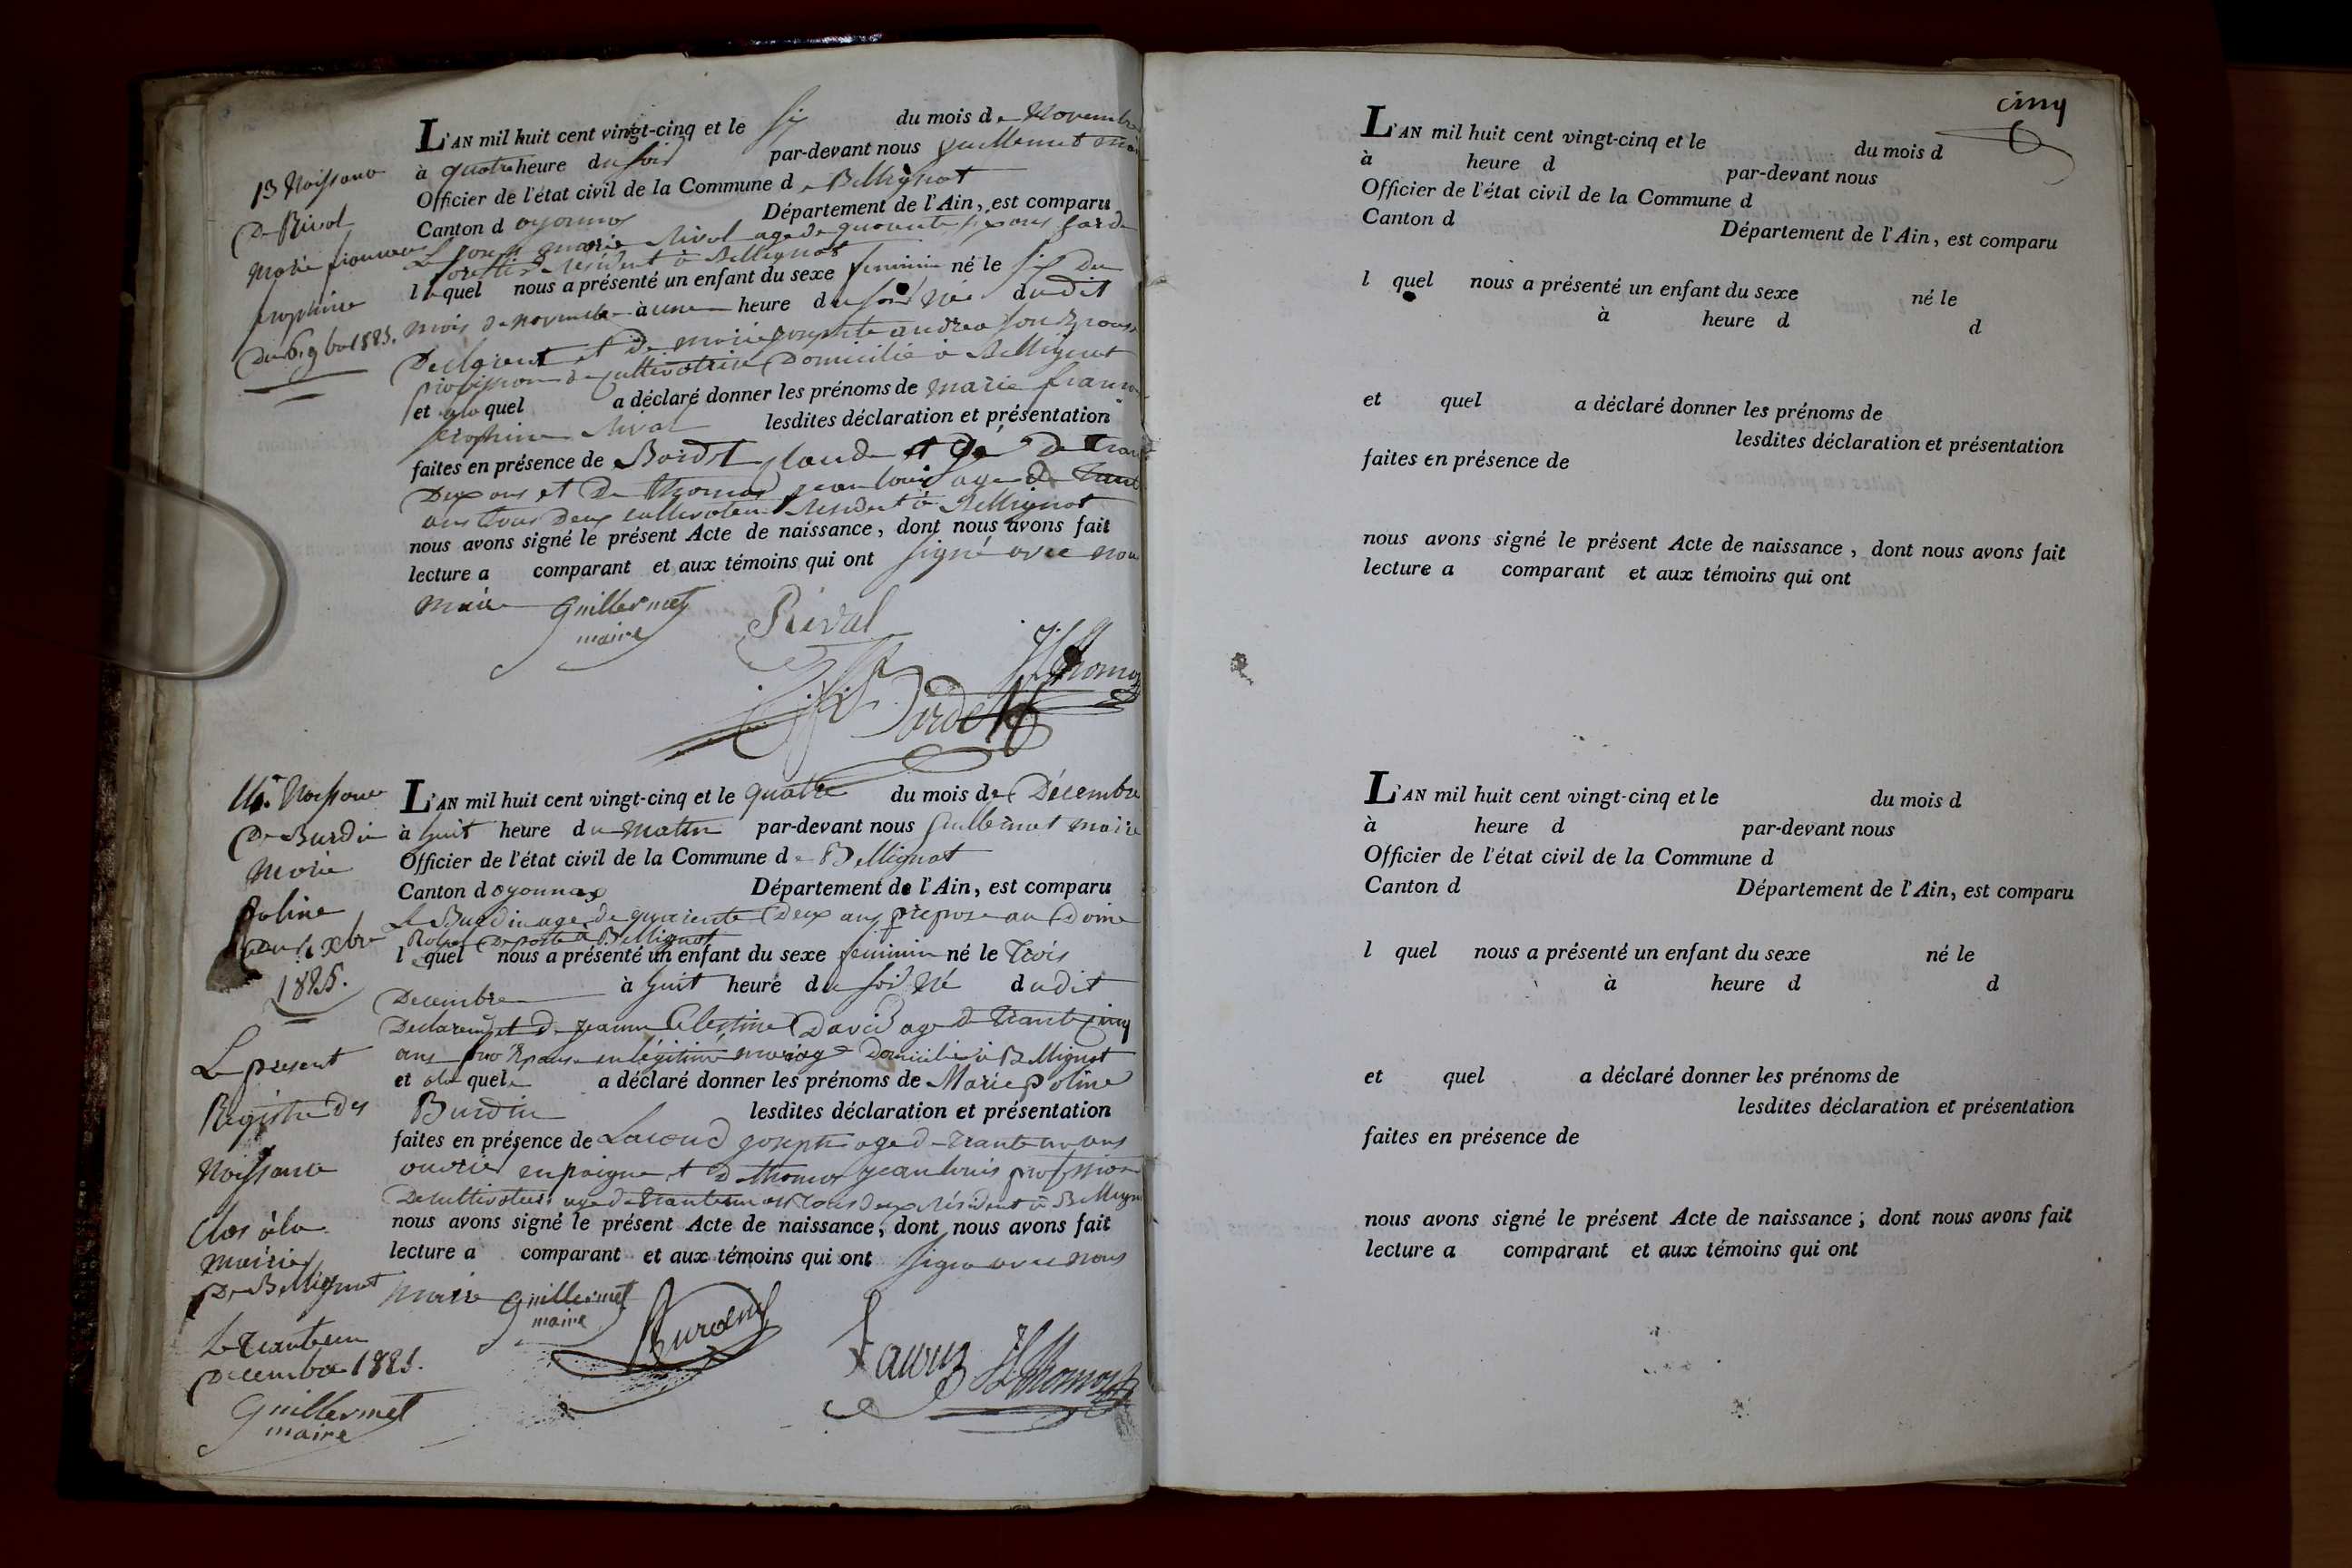 13 Naissance
De Rival
Marie françoise
Josephine
Du 6. 9bre 1825.
L'AN mil huit cent vingt-cinq et le six du mois de Novembre
à quatre heure du soir par-devant nous Guillermet maire
Officier de l'état civil de la Commune de Bellignat
Canton d oyonnax Département de l'Ain, est comparu
Le Joseph Marie Rival age de quarante six ans garde
forestier résident à Bellignat
lequel nous a présenté un enfant du sexe feminin né le six du
mois de novembre à une heure du soir Née dudit
Declarent et de marie josephte andrea son Epouse
profession de cultivatrice Domicilié à Bellignat
et alaquel a déclaré donner les prénoms de marie françoise
josephine Rival lesdites déclaration et présentation
faites en présence de Bordet Claude et agé de trante
Deux ans et De thomas jean louis age de trante
ans tous Deux cultivateur Résident à Bellignat
nous avons signé le présent Acte de naissance, dont nous avons fait
lecture a comparant et aux témoins qui ont signé avec nous
Maire Guillermet
maire
Rival
JL Thomas
Bordet
14. Naissance
De Burdin
Marie
Poline
Du 4 Xbre
1825.
L'AN mil huit cent vingt-cinq et le quatre du mois de Décembre
à huit heure du matin par-devant nous Guillermet maire
Officier de l'état civil de la Commune de Bellignat
Canton d oyonnax Département de l'Ain, est comparu
Le Burdin age de quarente Deux ans préposé au Doine
Royal De poste à Bellignat
lequel nous a présenté un enfant du sexe feminin né le trois
Decembre à huit heure du soir Né dudit
Declarent et de jeanne Celestine David age de trante cinq
ans son Epouse en légitime mariage Domicilié à Bellignat
et ala quele a déclaré donner les prénoms de Marie poline
Burdin lesdites déclaration et présentation
faites en présence de Lacoud joseph age de trante un ans
ouvrier en paigne et De thomas jean louis profession
De cultivateur age de trante un ans tous deux Résident à Bellignat
nous avons signé le présent Acte de naissance, dont nous avons fait
lecture a comparant et aux témoins qui ont signé avec nous
maire Guillermet
maire
Burdin
JL Thomas
Le présent
Registre des
Naissance
Clos à la
mairie
De Bellignat
Le trante un
Decembre 1825.
Guillermet
maire
cinq
L'AN mil huit cent vingt-cinq et le du mois d
à heure d par-devant nous
Officier de l'état civil de la Commune d
Canton d Département de l'Ain, est comparu
l quel nous a présenté un enfant du sexe né le
à heure d d
et quel a déclaré donner les prénoms de
lesdites déclaration et présentation
faites en présence de
nous avons signé le présent Acte de naissance, dont nous avons fait
lecture a comparant et aux témoins qui ont
L'AN mil huit cent vingt-cinq et le du mois d
à heure d par-devant nous
Officier de l'état civil de la Commune d
Canton d Département de l'Ain, est comparu
l quel nous a présenté un enfant du sexe né le
à heure d d
et quel a déclaré donner les prénoms de
lesdites déclaration et présentation
faites en présence de
nous avons signé le présent Acte de naissance ; dont nous avons fait
lecture a comparant et aux témoins qui ont